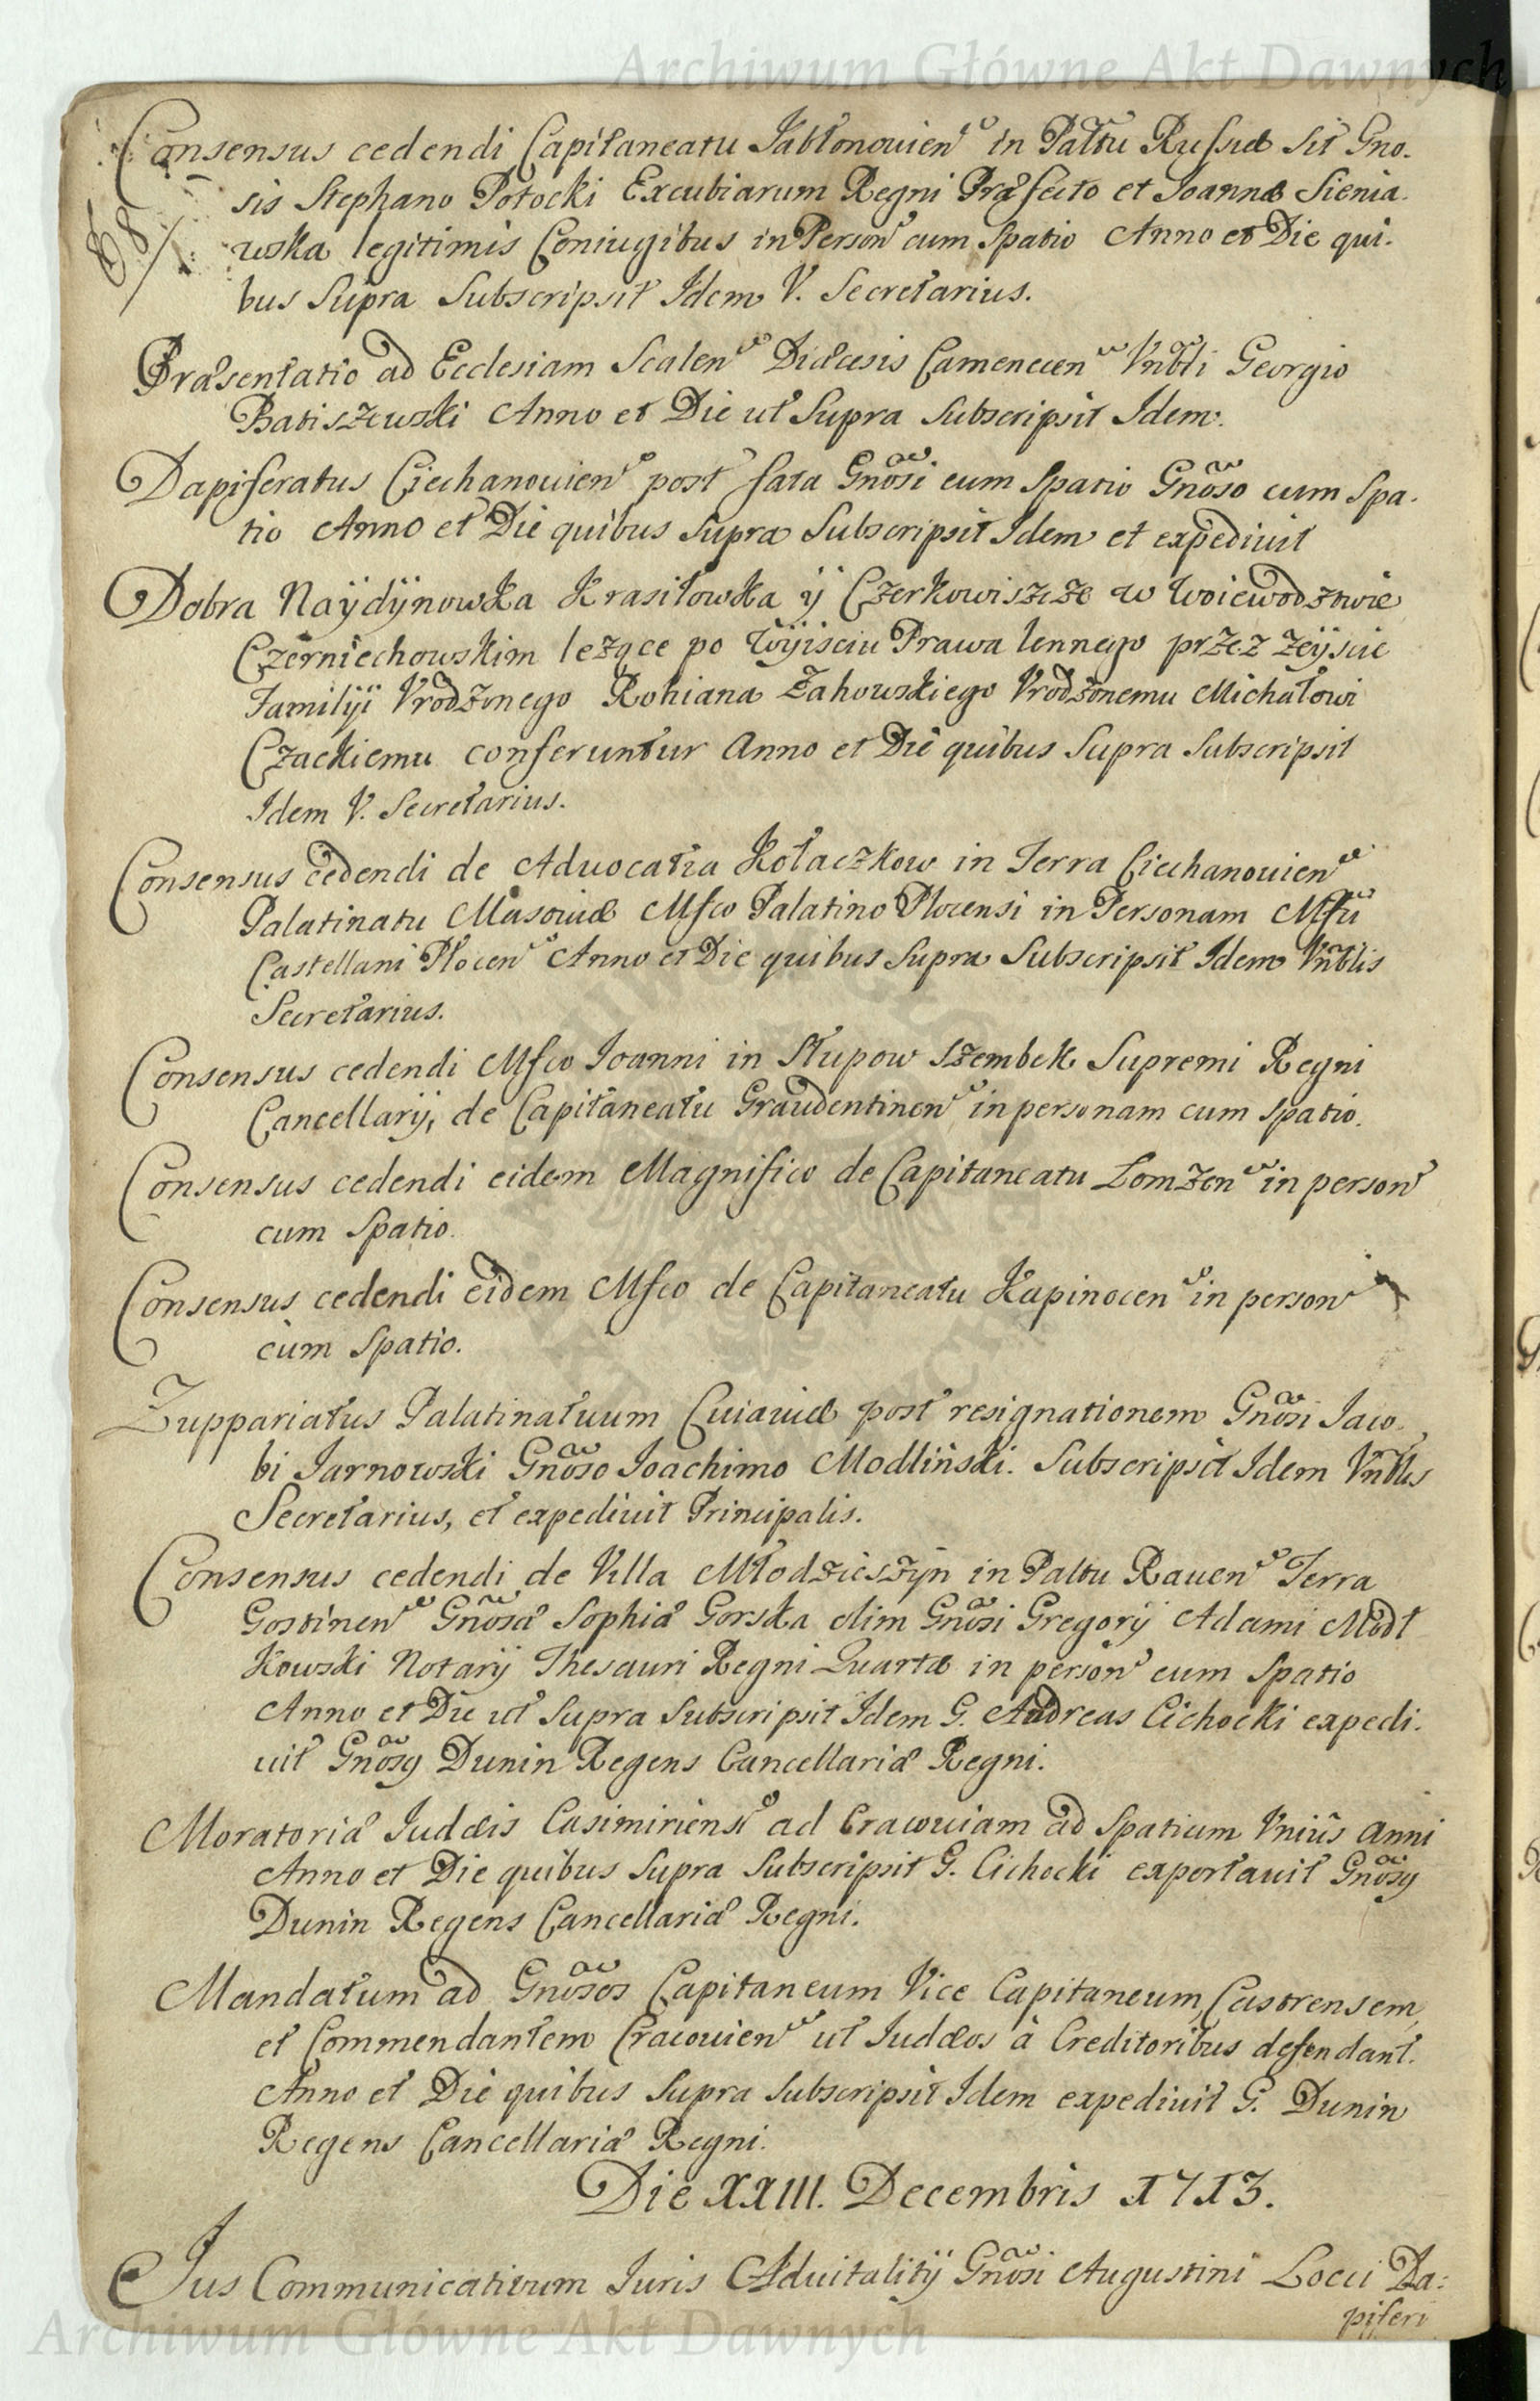 Archiwum Główne Akt Dawnych
Consensus cedendi Capitaneatu Jabłonouien in Palttu Russiæ sit Gno.
sis Stephano Potocki Excubiarum Regni Præfecto et Joannæ Sienia.
wska legitimis Coniugibus in Person cum Spatio Anno et Die qui.
68/
bus Supra Subscripsit Idem V. Secretarius.
Præsentatio ad Ecclesiam Scalen Diæcesis Camenecen Vnbli Georgio
Batiszewski Anno et Die ut Supra Subscripsit Idem.
Dapiferatus Ciechanouien post fata Gnosi cum Spatio Gnoso cum Spa.
tio Anno et Die quibus Supra Subscripsit Idem et expediuit
Dobra Naÿdÿnowka Krasiłowka ÿ Czerkowiszcze w Woiewodztwie
Czerniechowskim lezące po Wÿisciu Prawa lennego przez zeÿscie
Familÿi Vrodzonego Rohiana Zahowskiego Vrodzonemu Michałowi
Czackiemu conferuntur Anno et Die quibus Supra Subscripsit
Idem V. Secretarius.
Consensus cedendi de Aduocatia Kołaczkow in Terra Ciechanouien
Palatinatu Masouiæ Mfco Palatino Plocensi in Personam Mfci
Castellani Płocen Anno et Die quibus Supra Subscripsit Idem Vnblis
Secretarius.
Consensus cedendi Mfco Ioanni in Słupow Szembek Supremi Regni
Cancellarÿ, de Capitaneatu Graudentinen in personam cum spatio.
Consensus cedendi eidem Magnifico de Capitaneatu Lomzen in person
cum Spatio.
Consensus cedendi eidem Mfco de Capitaneatu Kapinocen in person
cum Spatio.
Zuppariatus Palatinatuum Cuiauiæ post resignationem Gnosi Iaco.
bi Jarnowski Gnoso Ioachimo Modliński. Subscripsit Idem Vnblis
Secretarius, et expediuit Principalis.
Consensus cedendi de Villa Młodzieszÿn in Palttu Rauen Terra
Gostinen Gnosæ Sophiæ Gorska olim Gnosi Gregorÿ Adami Modl
kowski Notarÿ Thesauri Regni Quartæ in person cum Spatio
Anno et Die ut Supra Subscripsit Idem G. Andreas Cichocki expedi.
uit Gnosy Dunin Regens Cancellariæ Regni.
Moratoriæ Iudæis Casimiriens ad Cracouiam ad Spatium Vnius Anni
Anno et Die quibus Supra Subscripsit G. Cichocki exportauit Gnosy
Dunin Regens Cancellariæ Regni.
Mandatum ad Gnosos Capitaneum Vice Capitaneum Castrensem
et Commendantem Cracouien ut Iudæos à Creditoribus defendant.
Anno et Die quibus Supra Subscripsit Idem expediuit G. Dunin
Regens Cancellariæ Regni.
Die XXIII. Decembris 1713.
Jus Communicatiuum Iuris Aduitalitÿ Gnosi Augustini Locci Da:
piferi
Archiwum Główne Akt Dawnych